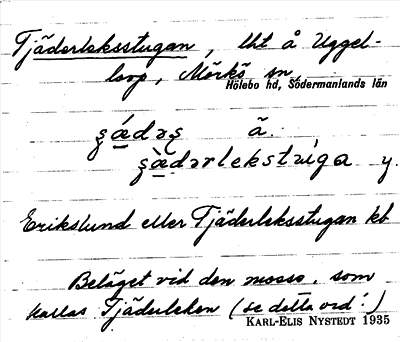 Tjäderleksstugan, lht å Uggel-
lovp, Mörkö sn,
Hölebo hd, Södermanlands län
ä.
y.
Erikslund eller Tjäderleksstugan kb
Beläget vid den mosse, som
kallas Tjäderleken (se detta ord!)
KARL-ELIS NYSTEDT 1935